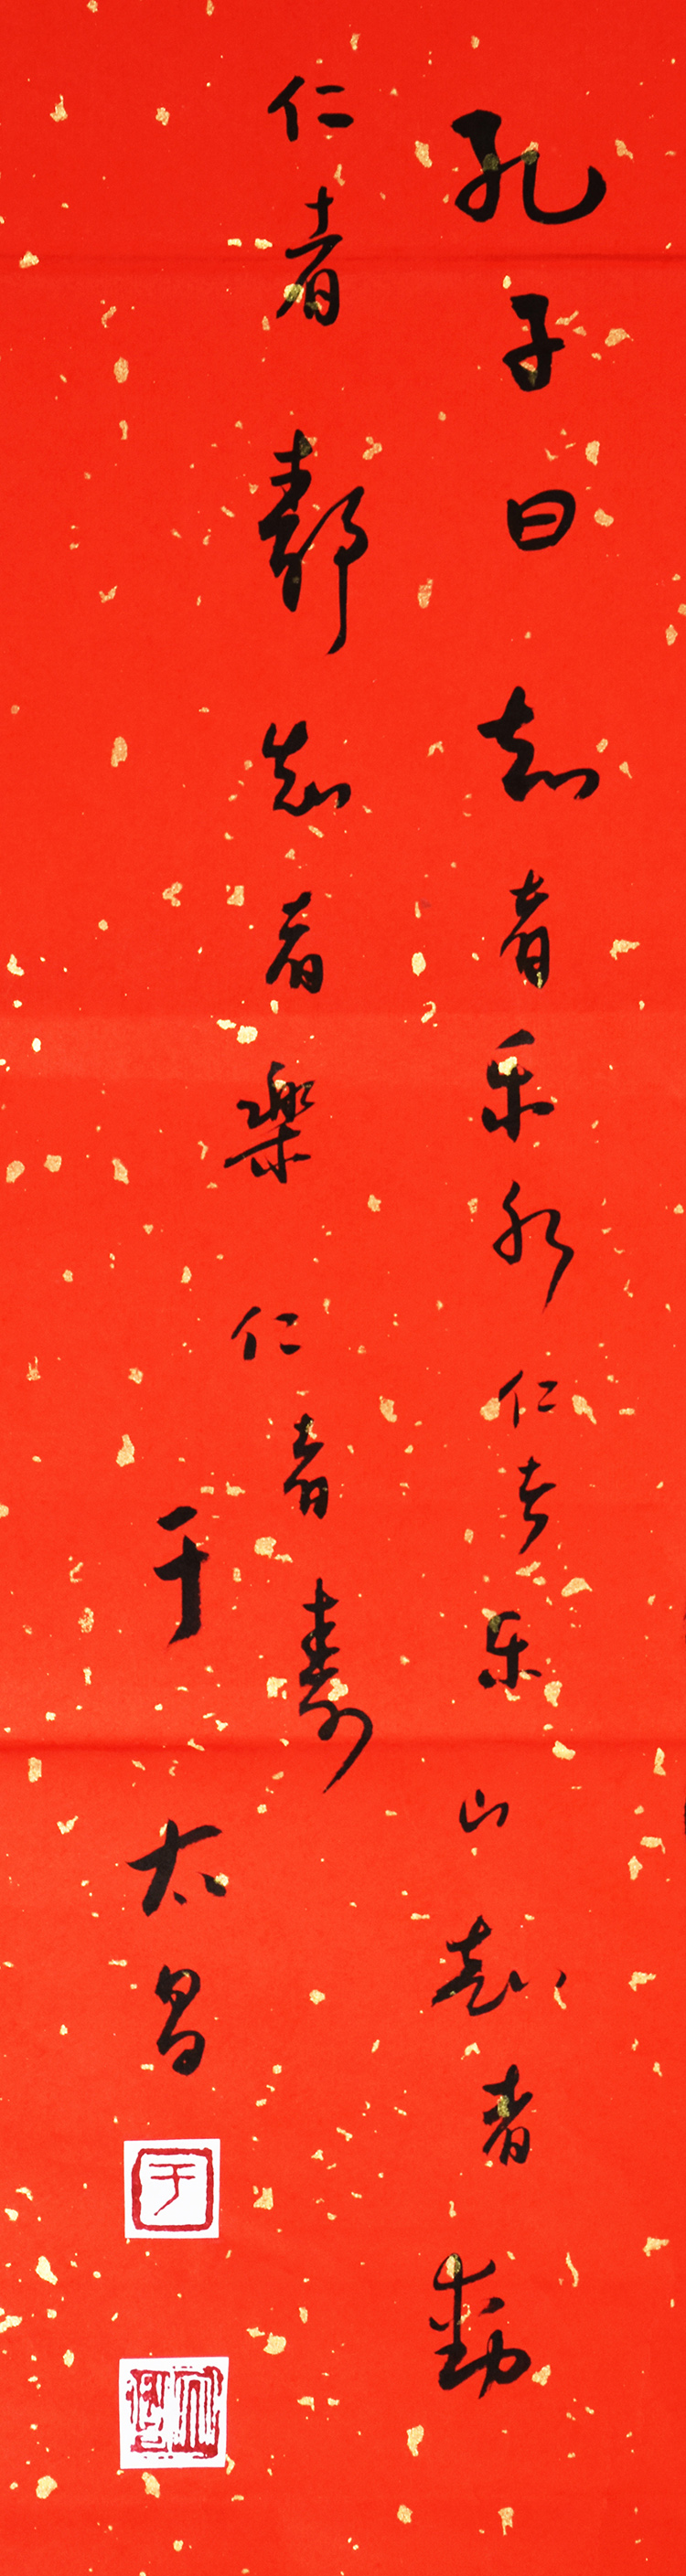 孔子曰知者乐水仁者乐山知者動
仁者靜知者樂仁者壽
于太昌
于